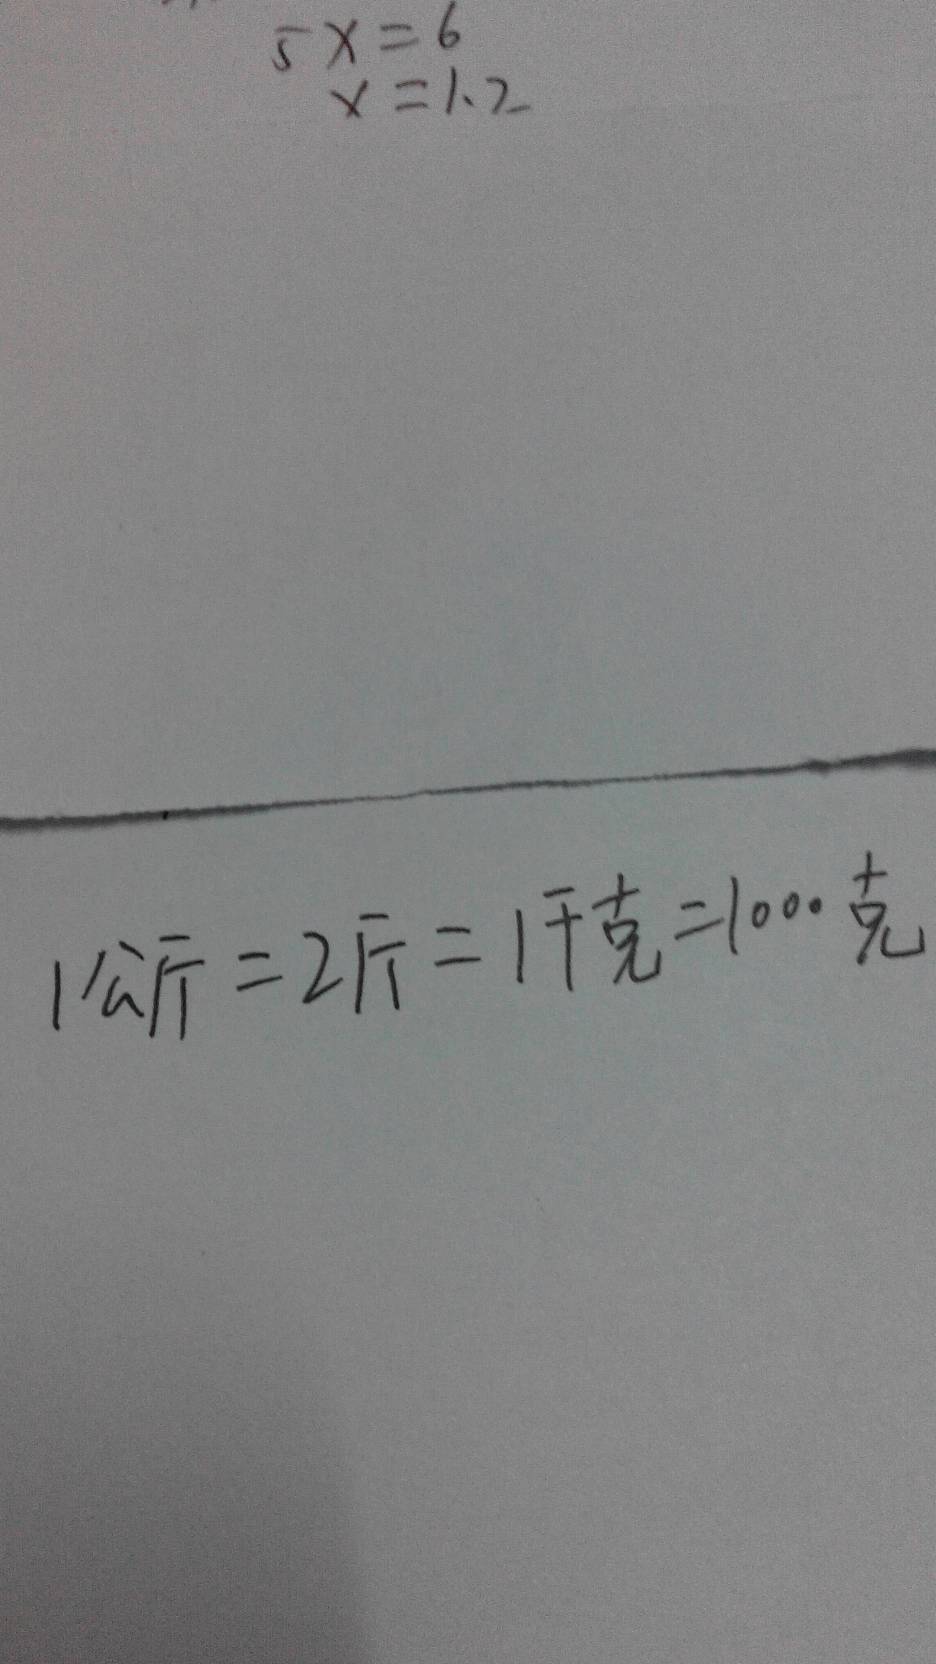 5x=6
x=1.2
1公斤=2斤=1千克=1000克